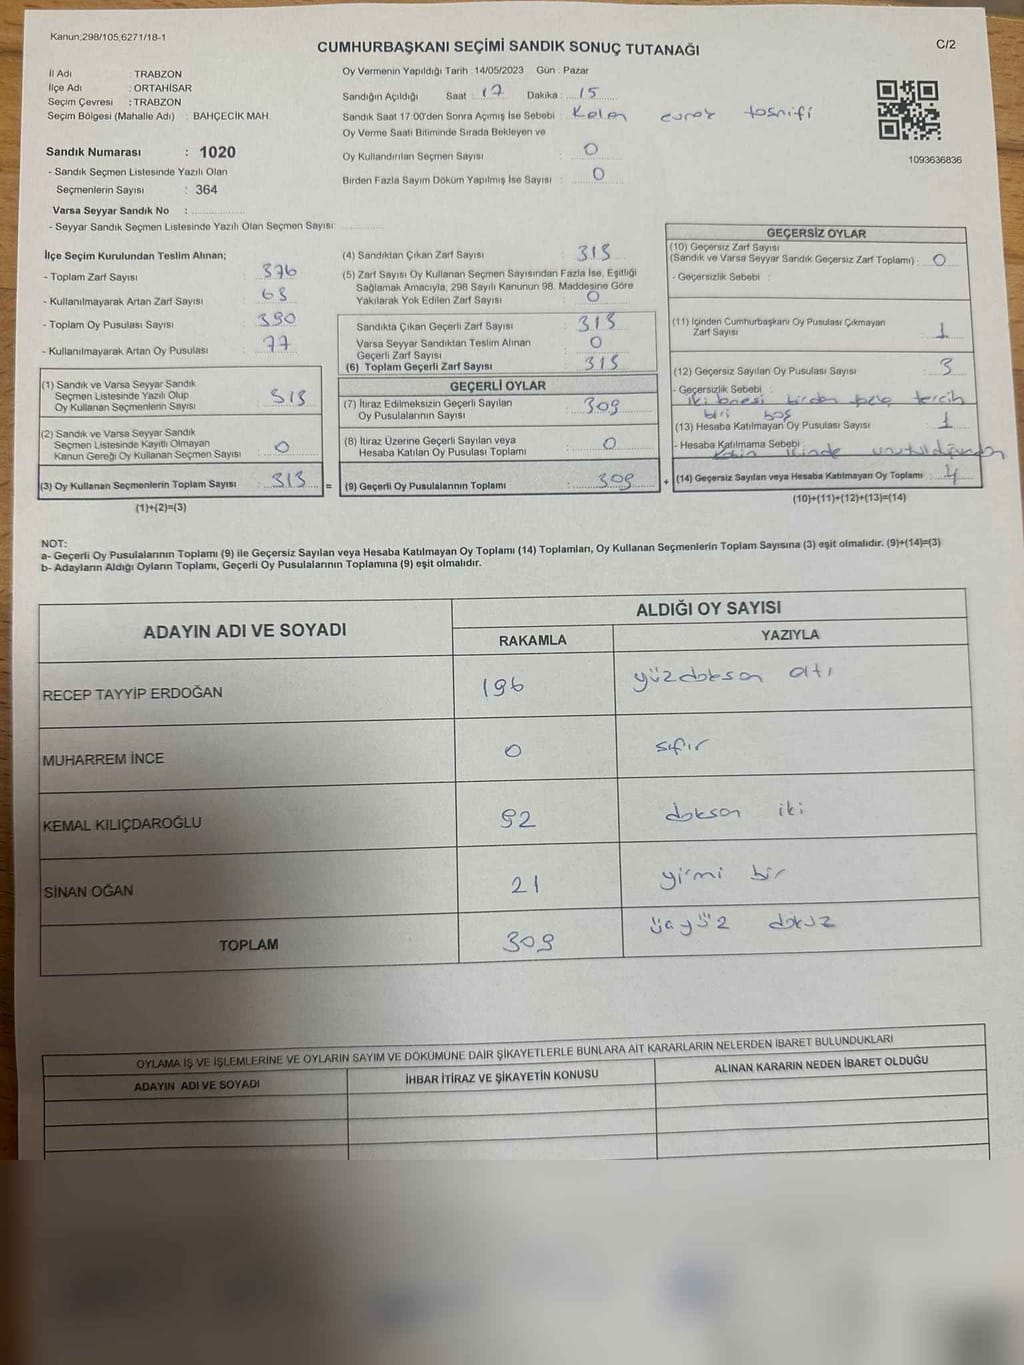 Kanun;298/105,6271/18-1
C/2
CUMHURBAŞKANI SEÇİMİ SANDIK SONUÇ TUTANAĞI
İl Adı : TRABZON
İlçe Adı : ORTAHİSAR
Seçim Çevresi : TRABZON
Seçim Bölgesi (Mahalle Adı) : BAHÇECİK MAH.
Sandık Numarası : 1020
- Sandık Seçmen Listesinde Yazılı Olan
Seçmenlerin Sayısı : 364
Varsa Seyyar Sandık No :
- Seyyar Sandık Seçmen Listesinde Yazılı Olan Seçmen Sayısı:
Oy Vermenin Yapıldığı Tarih : 14/05/2023 Gün : Pazar
Sandığın Açıldığı Saat : 17 Dakika : 15
Sandık Saat 17.00'den Sonra Açımış İse Sebebi : Kalan evrak tasnifi
Oy Verme Saati Bitiminde Sırada Bekleyen ve
Oy Kullandırılan Seçmen Sayısı : 0
Birden Fazla Sayım Döküm Yapılmış İse Sayısı : 0
1093636836
İlçe Seçim Kurulundan Teslim Alınan;
- Toplam Zarf Sayısı : 376
- Kullanılmayarak Artan Zarf Sayısı : 63
- Toplam Oy Pusulası Sayısı : 390
- Kullanılmayarak Artan Oy Pusulası : 77
(1) Sandık ve Varsa Seyyar Sandık
Seçmen Listesinde Yazılı Olup
Oy Kullanan Seçmenlerin Sayısı : 313
(2) Sandık ve Varsa Seyyar Sandık
Seçmen Listesinde Kayıtlı Olmayan
Kanun Gereği Oy Kullanan Seçmen Sayısı : 0
(3) Oy Kullanan Seçmenlerin Toplam Sayısı : 313 =
(1)+(2)=(3)
(4) Sandıktan Çıkan Zarf Sayısı : 313
(5) Zarf Sayısı Oy Kullanan Seçmen Sayısından Fazla İse, Eşitliği
Sağlamak Amacıyla, 298 Sayılı Kanunun 98. Maddesine Göre
Yakılarak Yok Edilen Zarf Sayısı : 0
Sandıkta Çıkan Geçerli Zarf Sayısı : 313
Varsa Seyyar Sandıktan Teslim Alınan
Geçerli Zarf Sayısı : 0
(6) Toplam Geçerli Zarf Sayısı : 313
GEÇERLİ OYLAR
(7) İtiraz Edilmeksizin Geçerli Sayılan
Oy Pusulalarının Sayısı : 309
(8) İtiraz Üzerine Geçerli Sayılan veya
Hesaba Katılan Oy Pusulası Toplamı : 0
(9) Geçerli Oy Pusulalarının Toplamı : 309 +
GEÇERSİZ OYLAR
(10) Geçersiz Zarf Sayısı
(Sandık ve Varsa Seyyar Sandık Geçersiz Zarf Toplamı) : 0
- Geçersizlik Sebebi :
(11) İçinden Cumhurbaşkanı Oy Pusulası Çıkmayan
Zarf Sayısı : 1
(12) Geçersiz Sayılan Oy Pusulası Sayısı : 3
- Geçersizlik Sebebi :
iki tanesi birden fazla tercih
biri boş
(13) Hesaba Katılmayan Oy Pusulası Sayısı : 1
- Hesaba Katılmama Sebebi : içinde unutulduğundan
(14) Geçersiz Sayılan veya Hesaba Katılmayan Oy Toplamı : 4
(10)+(11)+(12)+(13)=(14)
NOT:
a- Geçerli Oy Pusulalarının Toplamı (9) ile Geçersiz Sayılan veya Hesaba Katılmayan Oy Toplamı (14) Toplamları, Oy Kullanan Seçmenlerin Toplam Sayısına (3) eşit olmalıdır. (9)+(14)=(3)
b- Adayların Aldığı Oyların Toplamı, Geçerli Oy Pusulalarının Toplamına (9) eşit olmalıdır.
ADAYIN ADI VE SOYADI ALDIĞI OY SAYISI
RAKAMLA YAZIYLA
RECEP TAYYİP ERDOĞAN 196 yüzdoksan altı
MUHARREM İNCE 0 sıfır
KEMAL KILIÇDAROĞLU 92 doksan iki
SİNAN OĞAN 21 yirmi bir
TOPLAM 309 üçyüz dokuz
OYLAMA İŞ VE İŞLEMLERİNE VE OYLARIN SAYIM VE DÖKÜMÜNE DAİR ŞİKAYETLERLE BUNLARA AİT KARARLARIN NELERDEN İBARET BULUNDUKLARI
ADAYIN ADI VE SOYADI İHBAR İTİRAZ VE ŞİKAYETİN KONUSU ALINAN KARARIN NEDEN İBARET OLDUĞU